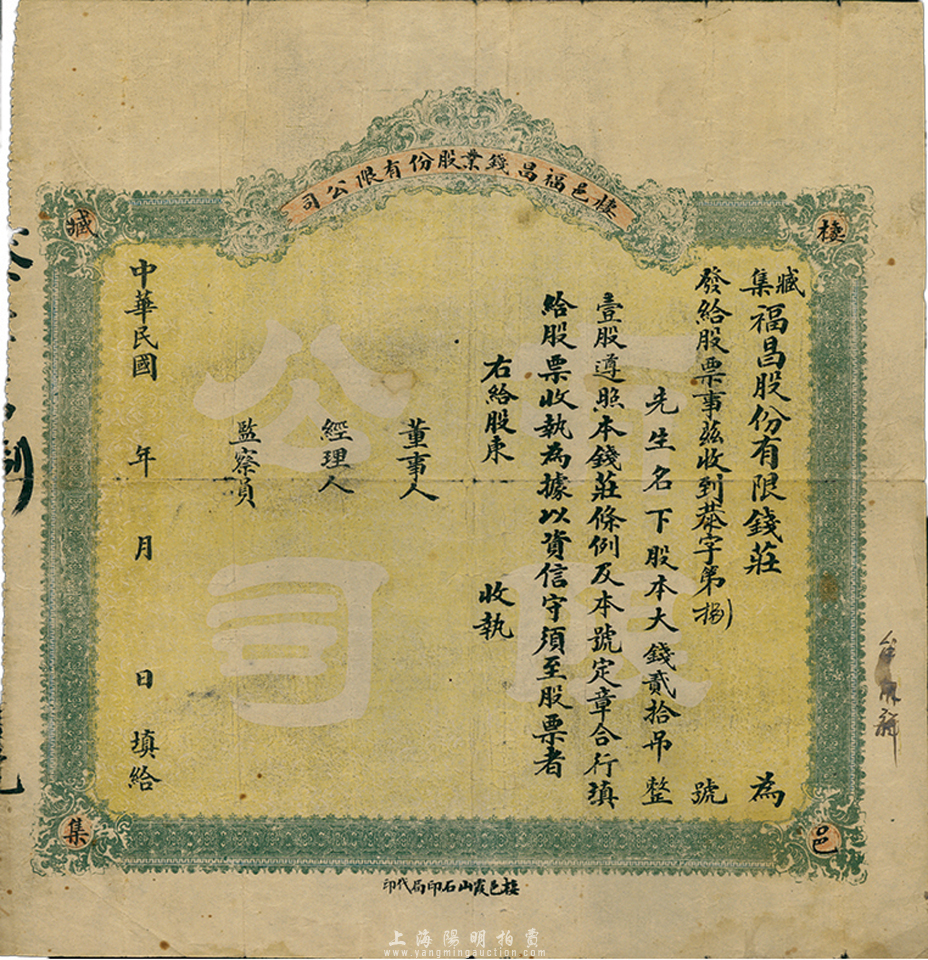 棲邑福昌錢業股份有限公司
棲
邑
臧
集
有限
公司
臧集福昌股份有限錢莊為
發給股票事茲收到恭字第捌號
先生名下股本大錢貳拾吊整
壹股遵照本錢莊條例及本號定章合行填
給股票收執為據以資信守須至股票者
右給股東 收執
董事人
經理人
監察員
中華民國 年 月 日填給
棲邑霞山石印局代印
上海陽明拍賣
www.yangmingauction.com